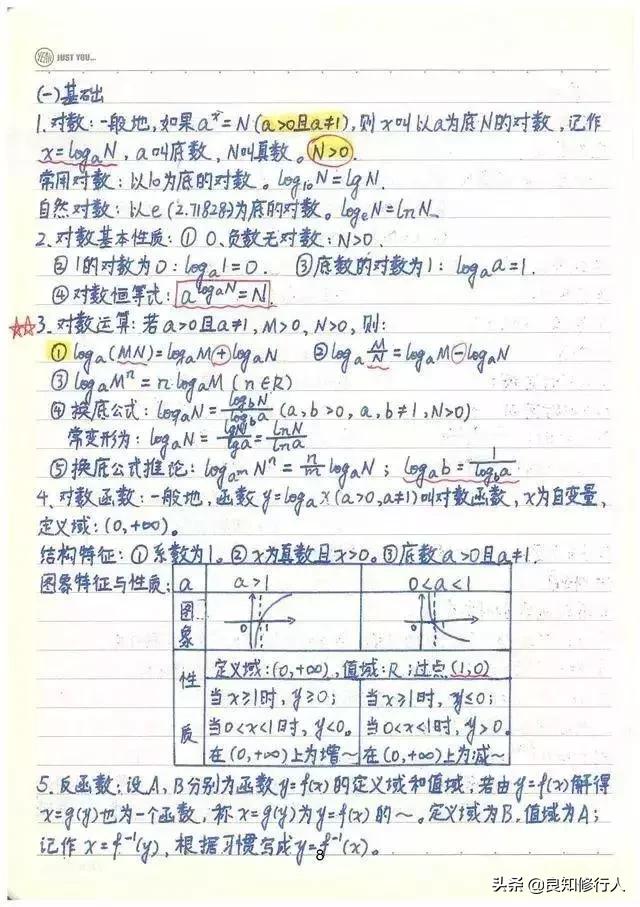 YEAH JUST YOU...
(一)基础
1.对数:一般地,如果aˣ=N(a>0且a≠1),则x叫以a为底N的对数,记作
x=logₐN,a叫底数,N叫真数。N>0.
常用对数:以10为底的对数。log₁₀N=lgN.
自然对数:以e(2.71828)为底的对数。logₑN=lnN.
2.对数基本性质:①0、负数无对数:N>0.
②1的对数为0:logₐ1=0. ③底数的对数为1:logₐa=1.
④对数恒等式:a^(logₐN)=N.
☆☆3.对数运算:若a>0且a≠1,M>0,N>0,则:
①logₐ(MN)=logₐM+logₐN ②logₐ(M/N)=logₐM-logₐN
③logₐMⁿ=n·logₐM(n∈R)
④换底公式:logₐN=log_bN/log_ba(a,b>0,a,b≠1,N>0)
常变形为:logₐN=lgN/lga=lnN/lna
⑤换底公式推论:log_(aᵐ)Nⁿ=(n/m)logₐN;logₐb=1/log_ba
4.对数函数:一般地,函数y=logₐx(a>0,a≠1)叫对数函数,x为自变量,
定义域:(0,+∞)。
结构特征:①系数为1。②x为真数且x>0。③底数a>0且a≠1.
图象特征与性质: a a>1 0<a<1
图象 0 1 0 1
性质
定义域:(0,+∞),值域:R;过点(1,0)
当x≥1时,y≥0; 当x≥1时,y≤0;
当0<x<1时,y<0。 当0<x<1时,y>0。
在(0,+∞)上为增~ 在(0,+∞)上为减~
5.反函数:设A、B分别为函数y=f(x)的定义域和值域,若由y=f(x)解得
x=g(y)也为一个函数,称x=g(y)为y=f(x)的~。定义域为B,值域为A;
记作x=f⁻¹(y),根据习惯写成y=f⁻¹(x)。
8
头条@良知修行人